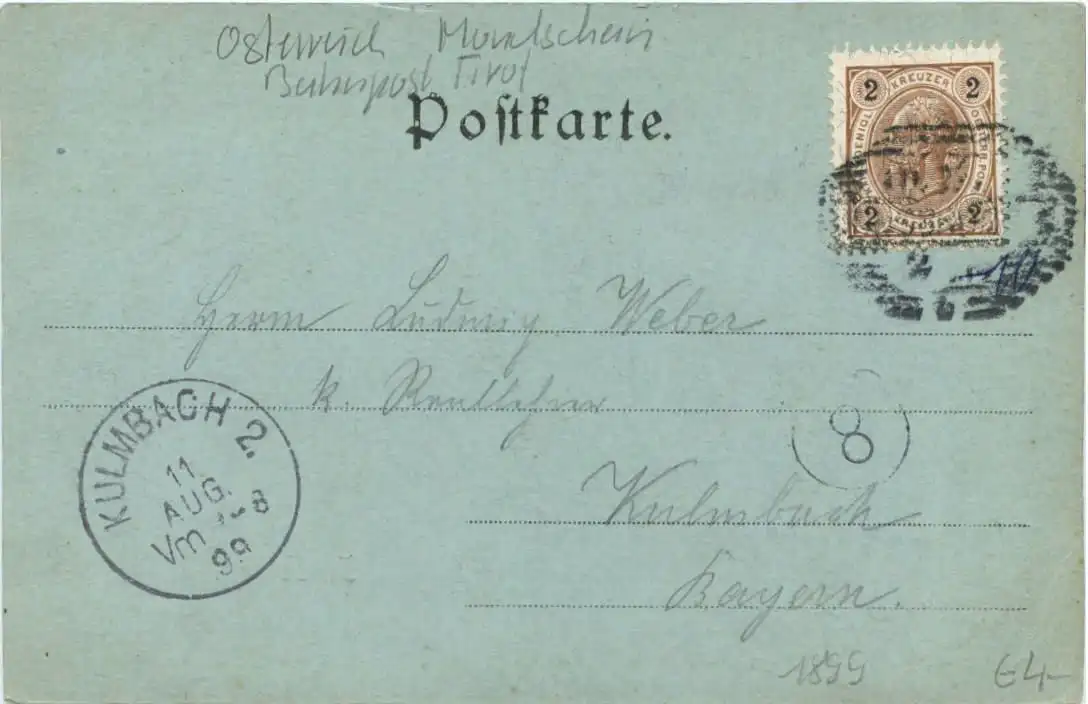 Österreich Mondschein
Bahnpost Tirol
Postkarte.
2 KREUZER 2
2 KREUZER 2
Herrn Ludwig Weber
k. Reallehrer
8
Kulmbach
Bayern.
KULMBACH 2.
11
AUG.
Vm 7-8
99
1899
€4-